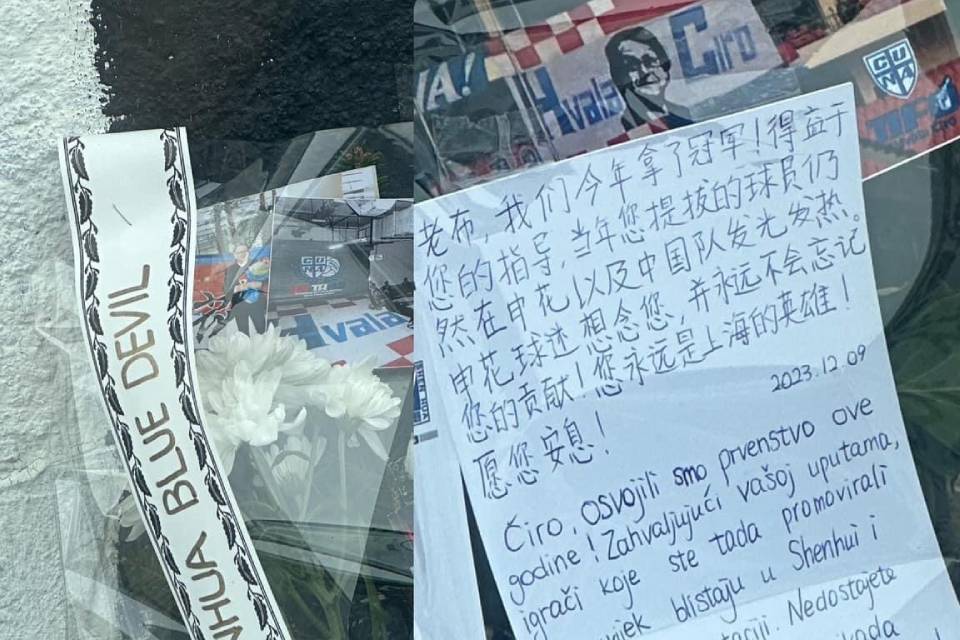 BLUE DEVIL
Hvala Ćiro
CUNA
Hvala
老布，我们今年拿了冠军！得益于
您的指导，当年您提拔的球员仍
然在申花以及中国队发光发热。
申花球迷想念您，并永远不会忘记
您的贡献！您永远是上海的英雄！
愿您安息！
2023.12.09
Ćiro, osvojili smo prvenstvo ove
godine! Zahvaljujući vašoj uputama,
igrači koje ste tada promovirali
blistaju u Shenhui i
Nedostajete